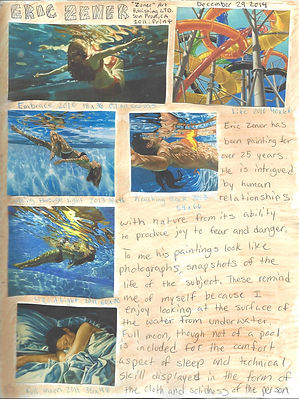 ERIC ZENER
"Zener" Art
Publishing LTD.
2011. Print
December 29 2014
Embrace 2010 18x36 Oil
Eric Zener has
been painting for
over 25 years.
He is intrigued
by human
relationships
with nature from its ability
to produce joy to fear and danger.
To me his paintings look like
photographs, snapshots of the
life of the subject. These remind
me of myself because I
enjoy looking at the surface of
the water from underwater.
Full moon, though not of a pool
is included for the comfort
aspect of sleep and technical
skill displayed in the form of
the cloth and solidness of the person
Full moon 2011 36x48